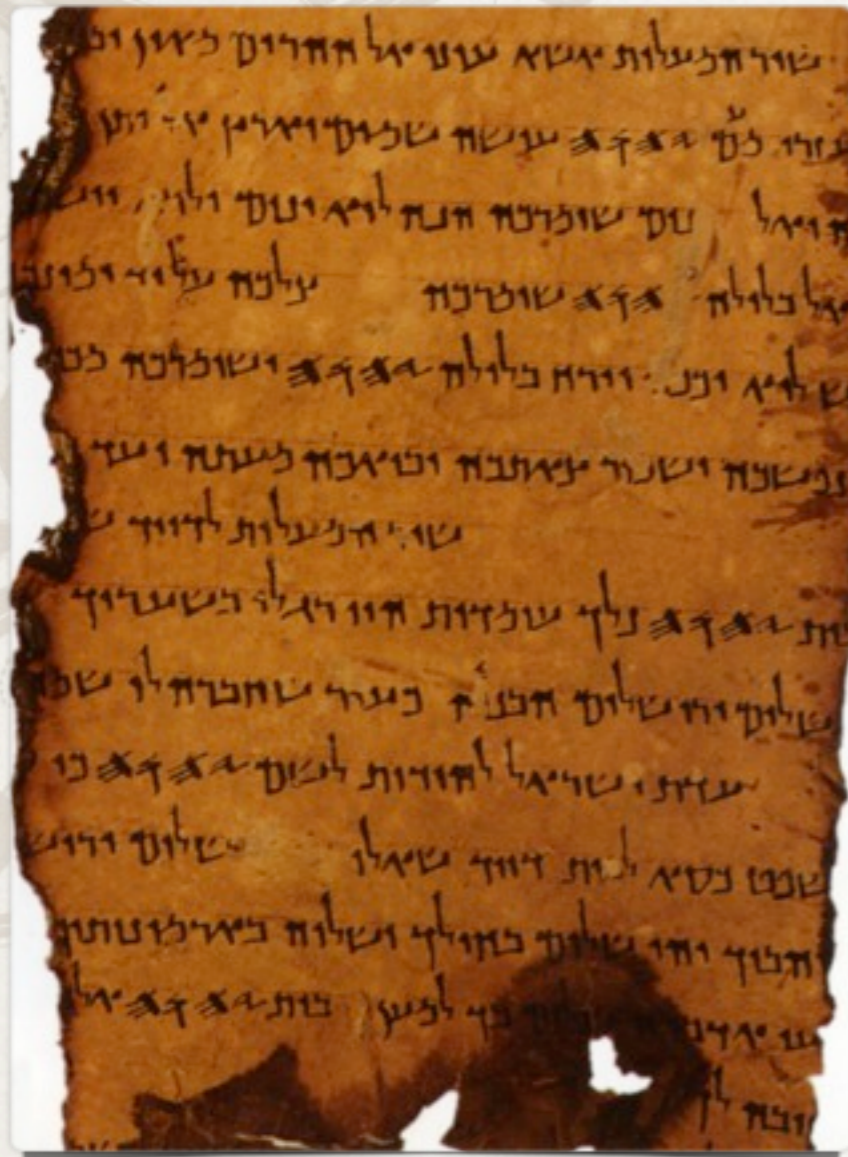 שיר המעלות אשא עיני אל ההרים מאין
עזרי מעם 𐤉𐤄𐤅𐤄 עושה שמים וארץ יתן
ואל שומרכה הנה לוא ינום ולוא
בלילה 𐤉𐤄𐤅𐤄 שומרכה צלכה על יד ימינ
ש לוא וירח בלילה 𐤉𐤄𐤅𐤄 ישומרכה
נפשכה ישמור צאתכה ובואכה מעתה ועד
שיר המעלות לדויד ש
בית 𐤉𐤄𐤅𐤄 נלך עומדות היו רגלי בשעריך
ירושלים הבנויה כעיר שחברה לו
עדת ישראל להודות לשם 𐤉𐤄𐤅𐤄 כי
כסא לבית דויד שאלו שלום ירוש
יהי שלום בחילך ושלוה
שלום בך למען בית 𐤉𐤄𐤅𐤄 אל
לך